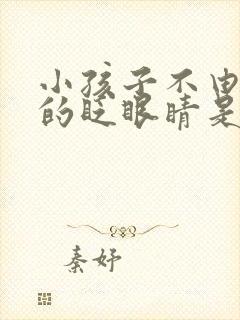 小孩子不由
的眨眼睛是
秦妤